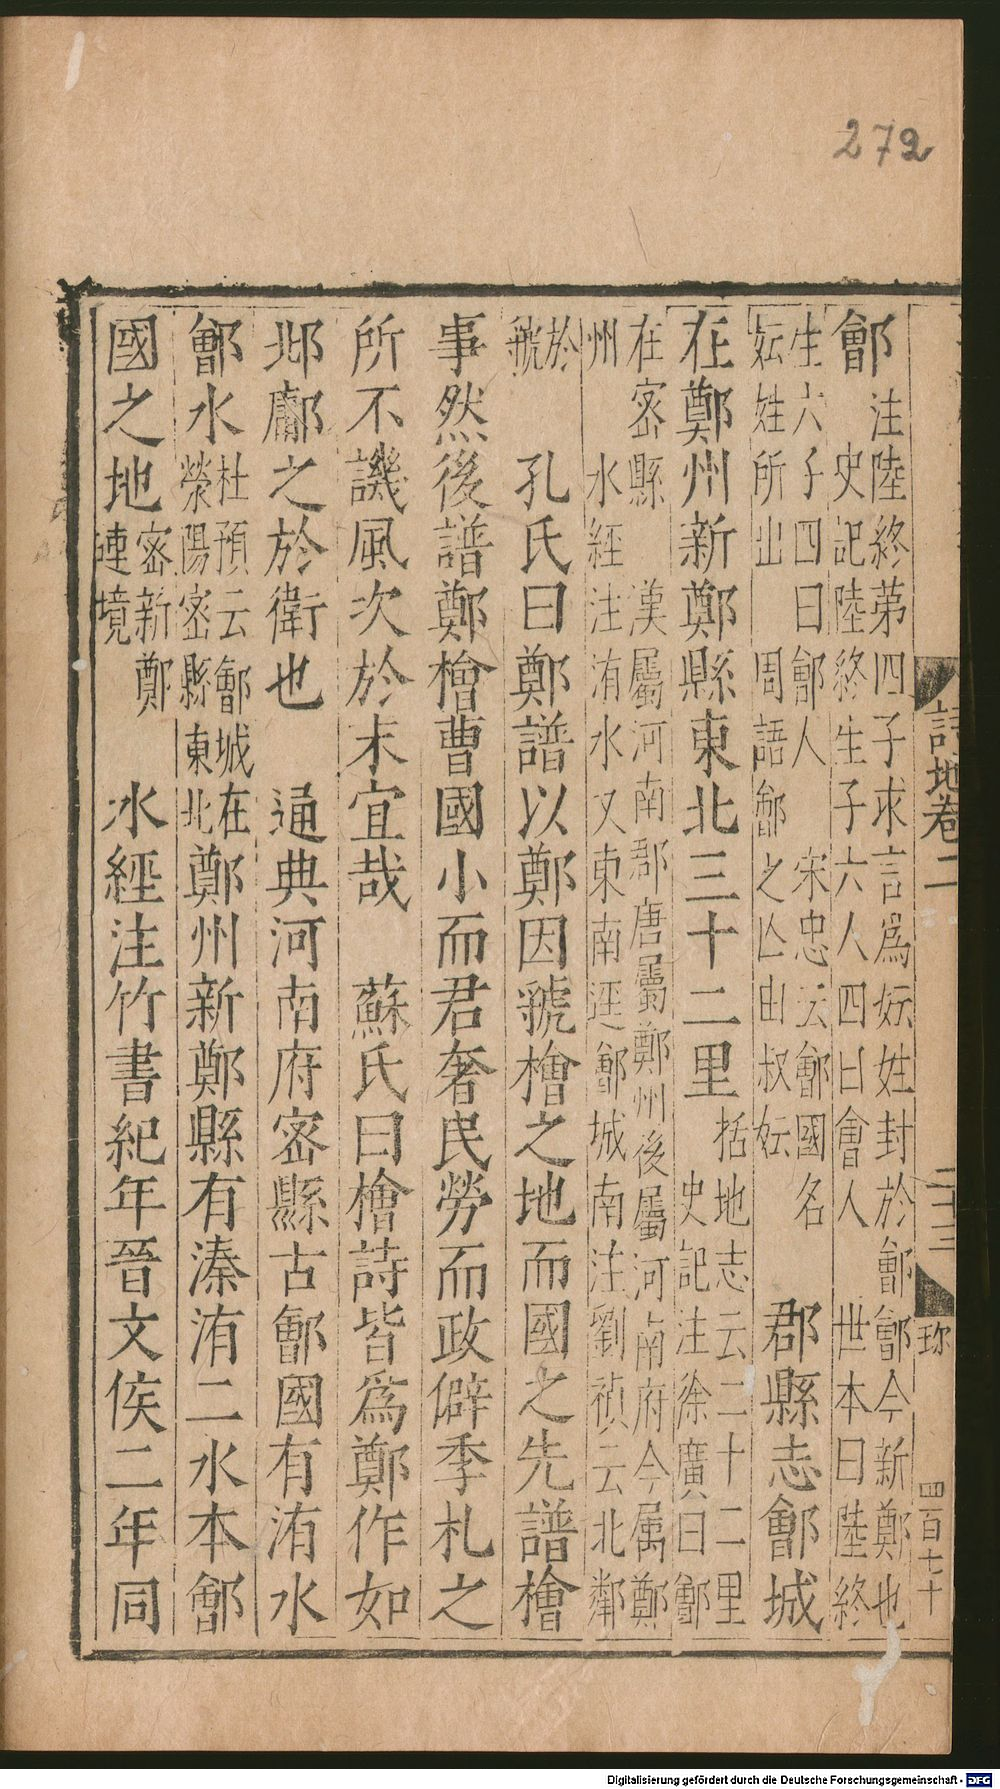 272
詩地卷二
二十三
珎
四百七十
鄶
注陸終第四子求言為妘姓封於鄶鄶今新鄭也
史記陸終生子六人四曰會人　世本曰陸終
生六子四曰鄶人　宋忠云鄶國名
妘姓所出　周語鄶之亾由叔妘
郡縣志鄶城
在鄭州新鄭縣東北三十二里
括地志云二十二里
史記注徐廣曰鄶
在密縣　漢屬河南郡唐屬鄭州後屬河南府今属鄭
州　水經注洧水又東南逕鄶城南注劉禎云北鄰
於
虢
孔氏曰鄭譜以鄭因虢檜之地而國之先譜檜
事然後譜鄭檜曹國小而君奢民勞而政僻季札之
所不譏風次於末宜哉　蘇氏曰檜詩皆爲鄭作如
邶鄘之於衛也　通典河南府密縣古鄶國有洧水
鄶水
杜預云鄶城在
滎陽密縣東北
鄭州新鄭縣有溱洧二水本鄶
國之地
密新鄭
連境
水經注竹書紀年晉文侯二年同
Digitalisierung gefördert durch die Deutsche Forschungsgemeinschaft - DFG